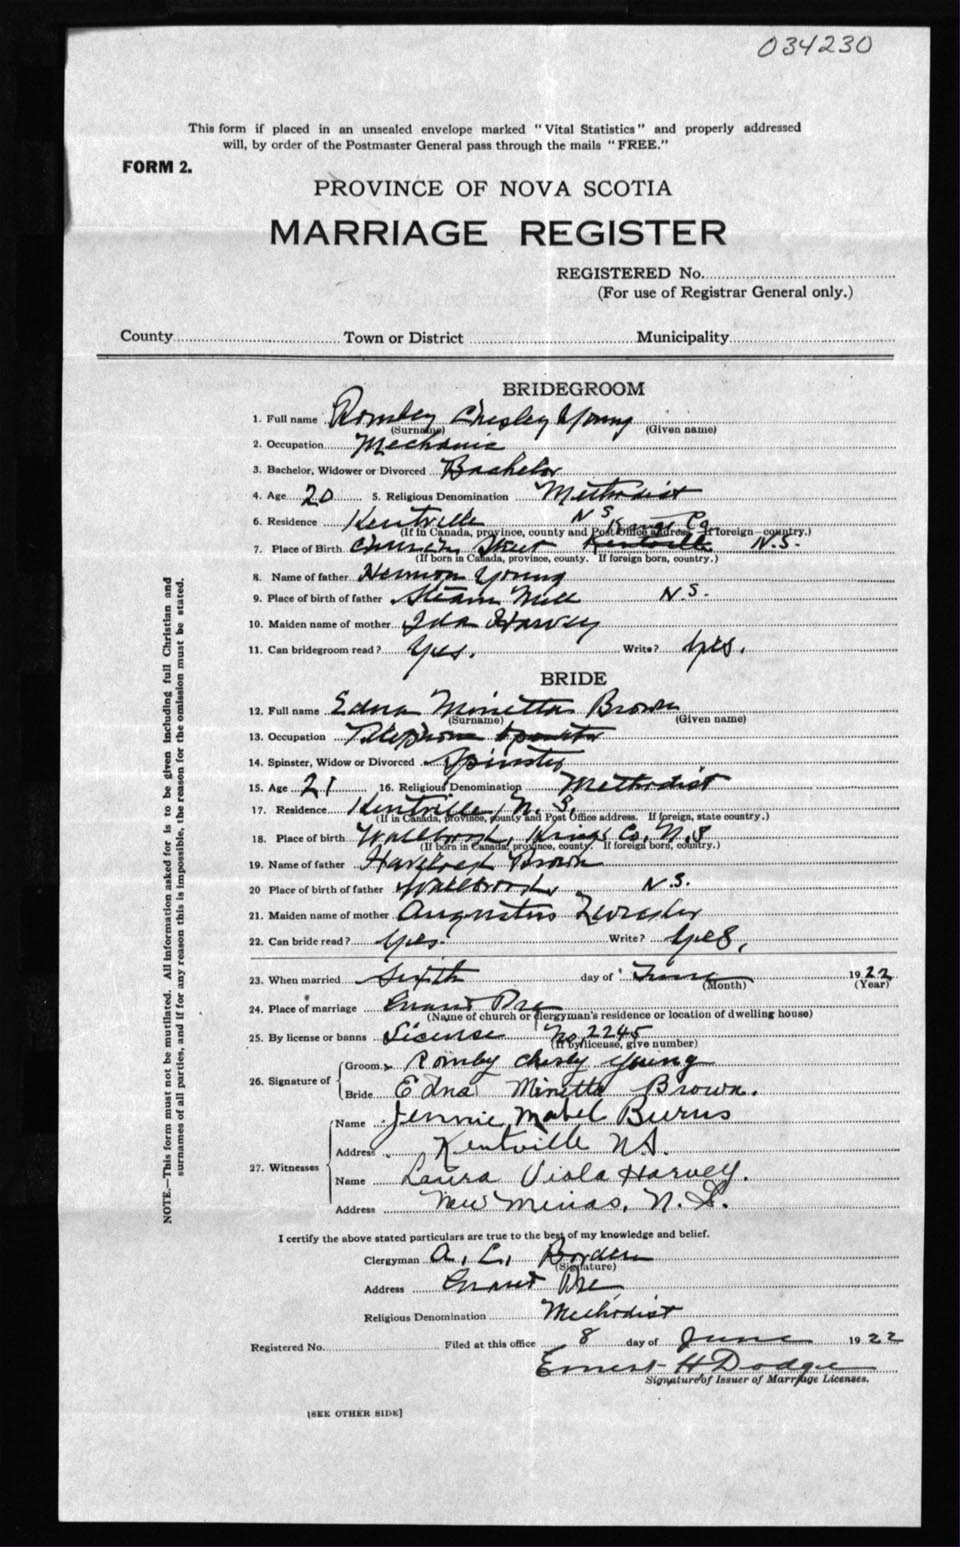 034230
This form if placed in an unsealed envelope marked "Vital Statistics" and properly addressed
will, by order of the Postmaster General pass through the mails "FREE."
FORM 2.
PROVINCE OF NOVA SCOTIA
MARRIAGE REGISTER
REGISTERED No.
(For use of Registrar General only.)
County Town or District Municipality
BRIDEGROOM
1. Full name Romby Chesley Young
(Surname) (Given name)
2. Occupation Mechanic
3. Bachelor, Widower or Divorced Bachelor
4. Age 20 5. Religious Denomination Methodist
6. Residence Kentville N S Kings Co
(If in Canada, province, county and Post Office address. If foreign country.)
7. Place of Birth Church Street Kentville N.S.
(If born in Canada, province, county. If foreign born, country.)
8. Name of father Young
9. Place of birth of father Steam Mill N.S.
10. Maiden name of mother Ida Harvey
11. Can bridegroom read? Yes. Write? Yes.
BRIDE
12. Full name Edna Minetta Brown
(Surname) (Given name)
13. Occupation Telephone Operator
14. Spinster, Widow or Divorced Spinster
15. Age 21 16. Religious Denomination Methodist
17. Residence Kentville, N. S.
(If in Canada, province, county and Post Office address. If foreign, state country.)
18. Place of birth Wallbrook, Kings Co, N.S
(If born in Canada, province, county. If foreign born, country.)
19. Name of father Brown
20 Place of birth of father Wallbrook, N.S.
21. Maiden name of mother Augustus
22. Can bride read? Yes. Write? Yes.
23. When married Sixth day of June 1922
(Month) (Year)
24. Place of marriage Grand Pre
(Name of church or clergyman's residence or location of dwelling house)
25. By license or banns License No. 2245
(If by license, give number)
26. Signature of Groom Romby Chesly Young
Bride Edna Minetta Brown.
27. Witnesses Name Jennie Mabel Burns
Address Kentville N.S.
Name Laura Viola Harvey.
Address New Minas, N. S.
I certify the above stated particulars are true to the best of my knowledge and belief.
Clergyman A. L. Borden
(Signature)
Address Grand Pre
Religious Denomination Methodist
Registered No. Filed at this office 8 day of June 1922
Ernest H Dodge
Signature of Issuer of Marriage Licenses.
[SEE OTHER SIDE]
NOTE.—This form must not be mutilated. All information asked for is to be given including full Christian and
surnames of all parties, and if for any reason this is impossible, the reason for the omission must be stated.